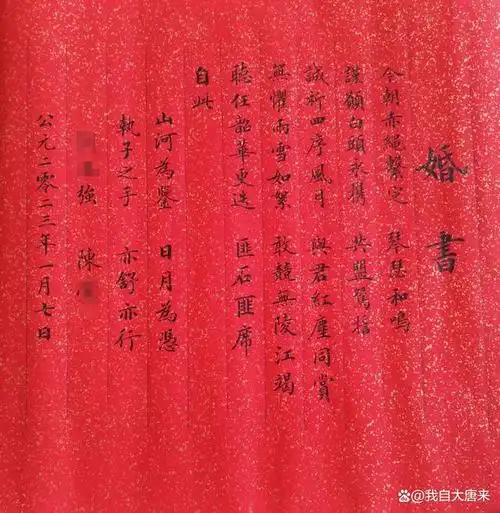 婚書
今朝赤繩繫定 琴瑟和鳴
謹願白頭永攜 共盟鴛牒
誠祈四序風月 與君紅塵同賞
無懼雨雪如繁 敢競無陵江竭
聽任韶華更迭 匪石匪席
自此
山河為鑒 日月為憑
執子之手 亦舒亦行
強 陳
公元二零二三年一月七日
我自大唐来